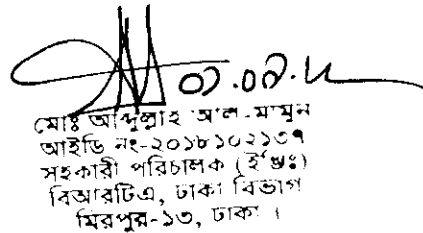 ০১.০৯.
মোঃ আব্দুল্লাহ আল-মামুন
আইডি নং-২০১৮১০২১৩৭
সহকারী পরিচালক (ইঞ্জিঃ)
বিআরটিএ, ঢাকা বিভাগ
মিরপুর-১৩, ঢাকা ।